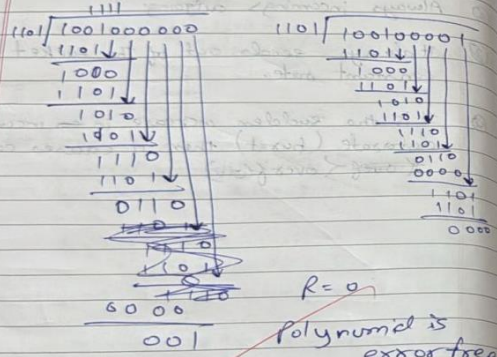 1111
1101 ) 1001000000
1101
1000
1101
1010
1101
1110
1101
0110
0000
001
1101 ) 100100001
1101
1000
1101
1010
1101
1110
1101
0110
0000
1101
1101
0000
R = 0
Polynomial is
error free